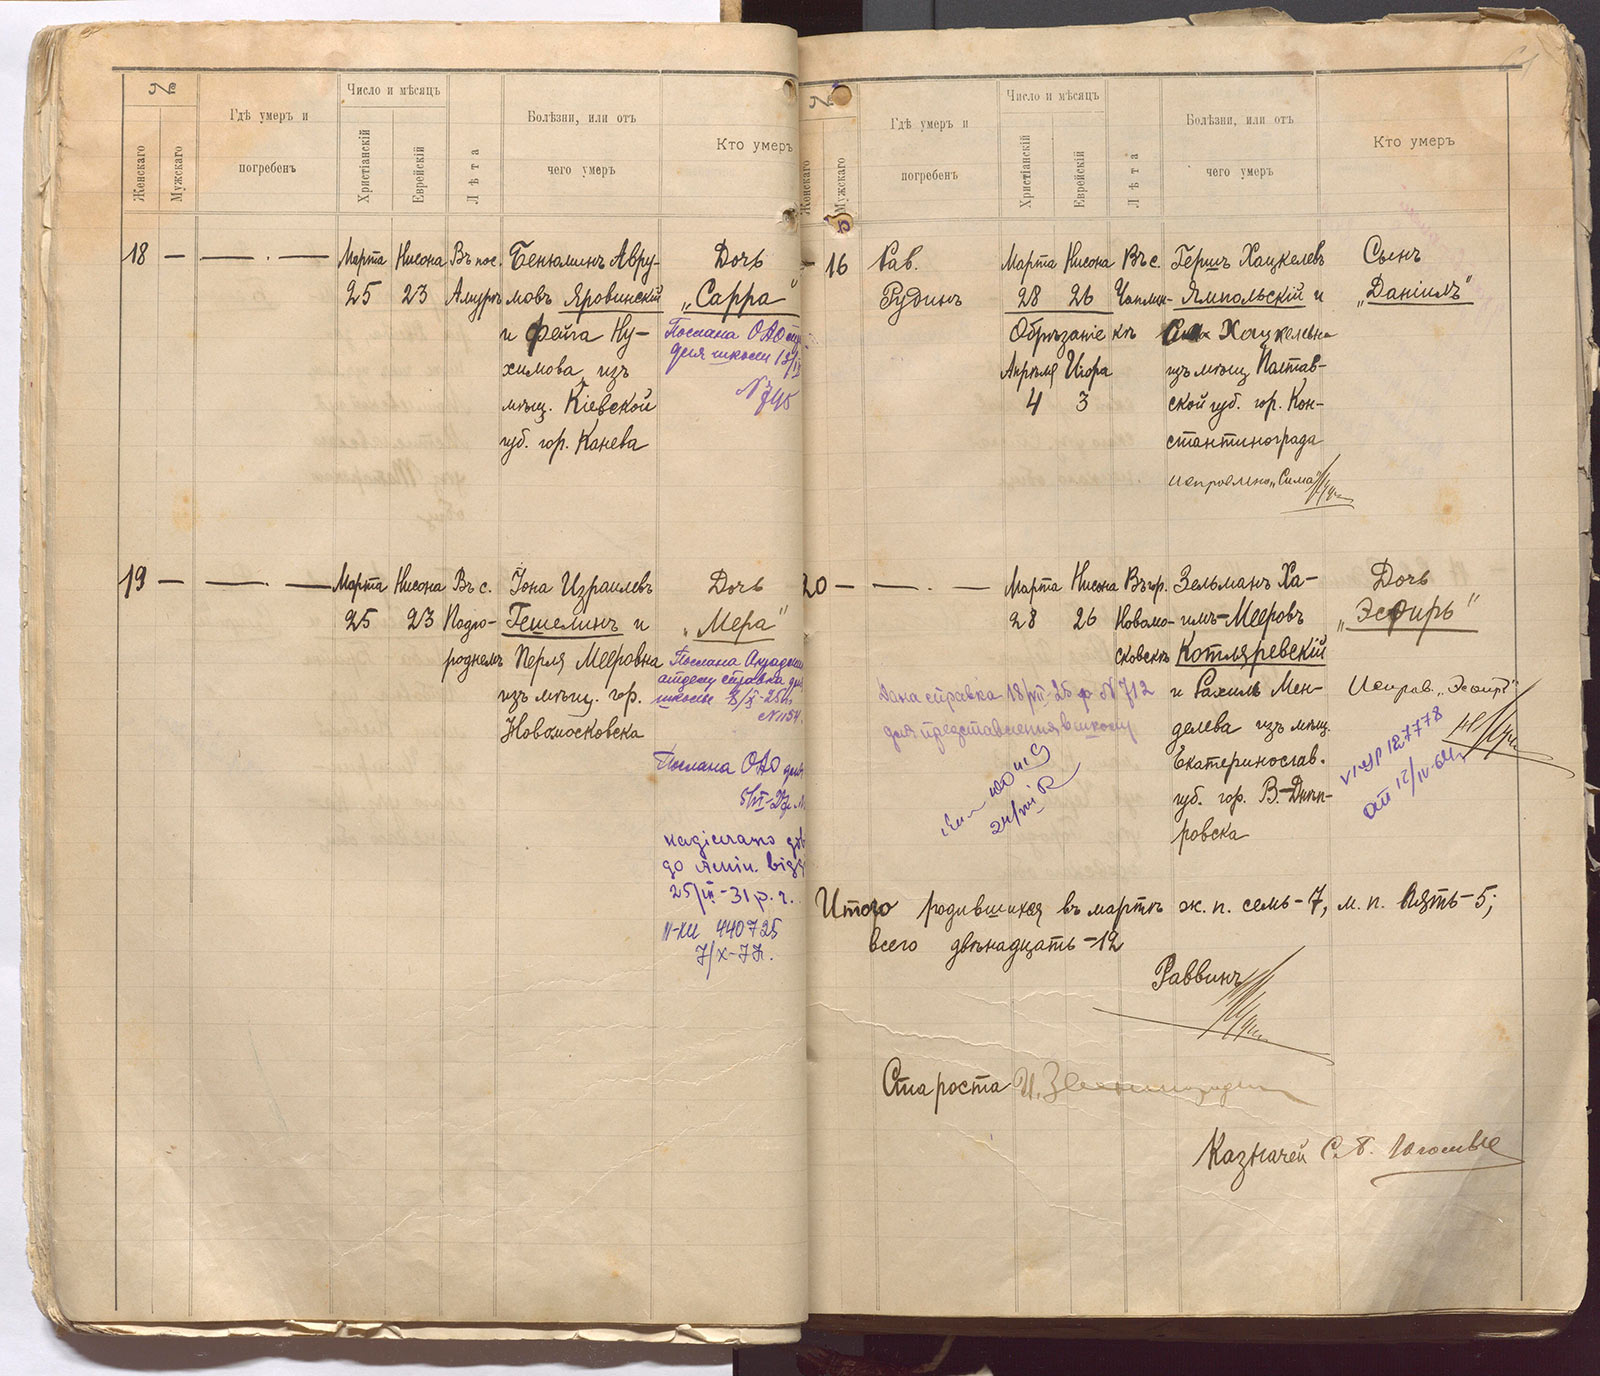 №
Женскаго
Мужскаго
Гдѣ умеръ и
погребенъ
Число и мѣсяцъ
Христіанскій
Еврейскій
Лѣта
Болѣзни, или отъ
чего умеръ
Кто умеръ
18 — — . —
Марта
25
Нисона
23
Въ пос.
Амуръ
Бенюминъ Авру-
мовъ Яровинскій
и Фейга Ну-
химова, изъ
мѣщ. Кіевской
губ. гор. Канева
Дочь
„Сарра"
Послана ОАО
для школи
19 — — . —
Марта
25
Нисона
23
Въ с.
Подго-
роднемъ
Іона Израилевъ
Гешелинъ и
Перля Мееровна
изъ мѣщ. гор.
Новомосковска
Дочь
„Мера"
Послана
справка для
школы
№ 1154.
Послана ОАО для
надіслано
до Адмін. відд
25/III-31 р.
440725
7/X-77.
№
Женскаго
Мужскаго
Гдѣ умеръ и
погребенъ
Число и мѣсяцъ
Христіанскій
Еврейскій
Лѣта
Болѣзни, или отъ
чего умеръ
Кто умеръ
— 16
Рав.
Рудинъ
Марта
28
Нисона
26
Обрѣзаніе къ
Апрѣля
4
Ніора
3
Въ с.
Чаплин-
Гершъ Хацкелевъ
Ямпольскій и
Хацкелевна
изъ мѣщ. Полтав-
ской губ. гор. Кон-
стантинограда
исправлено „Сима"
Сынъ
„Даніилъ"
20 — — . —
Марта
28
Нисона
26
Въ гор.
Новомо-
сковскѣ
Зельманъ Ха-
имъ-Мееровъ
Котляревскій
и Рахиль Мен-
делева изъ мѣщ.
Екатеринослав.
губ. гор. В.-Днѣп-
ровска
Дочь
„Эсфирь"
Исправ. „Эсфирь"
Дана справка 18/VII-25 р № 712
для представления в школу
187778
от 12/IV-64
Итого родившихся въ мартѣ ж. п. семь-7, м. п. пять-5;
всего двѣнадцать-12
Раввинъ
Староста И.
Казначей С.